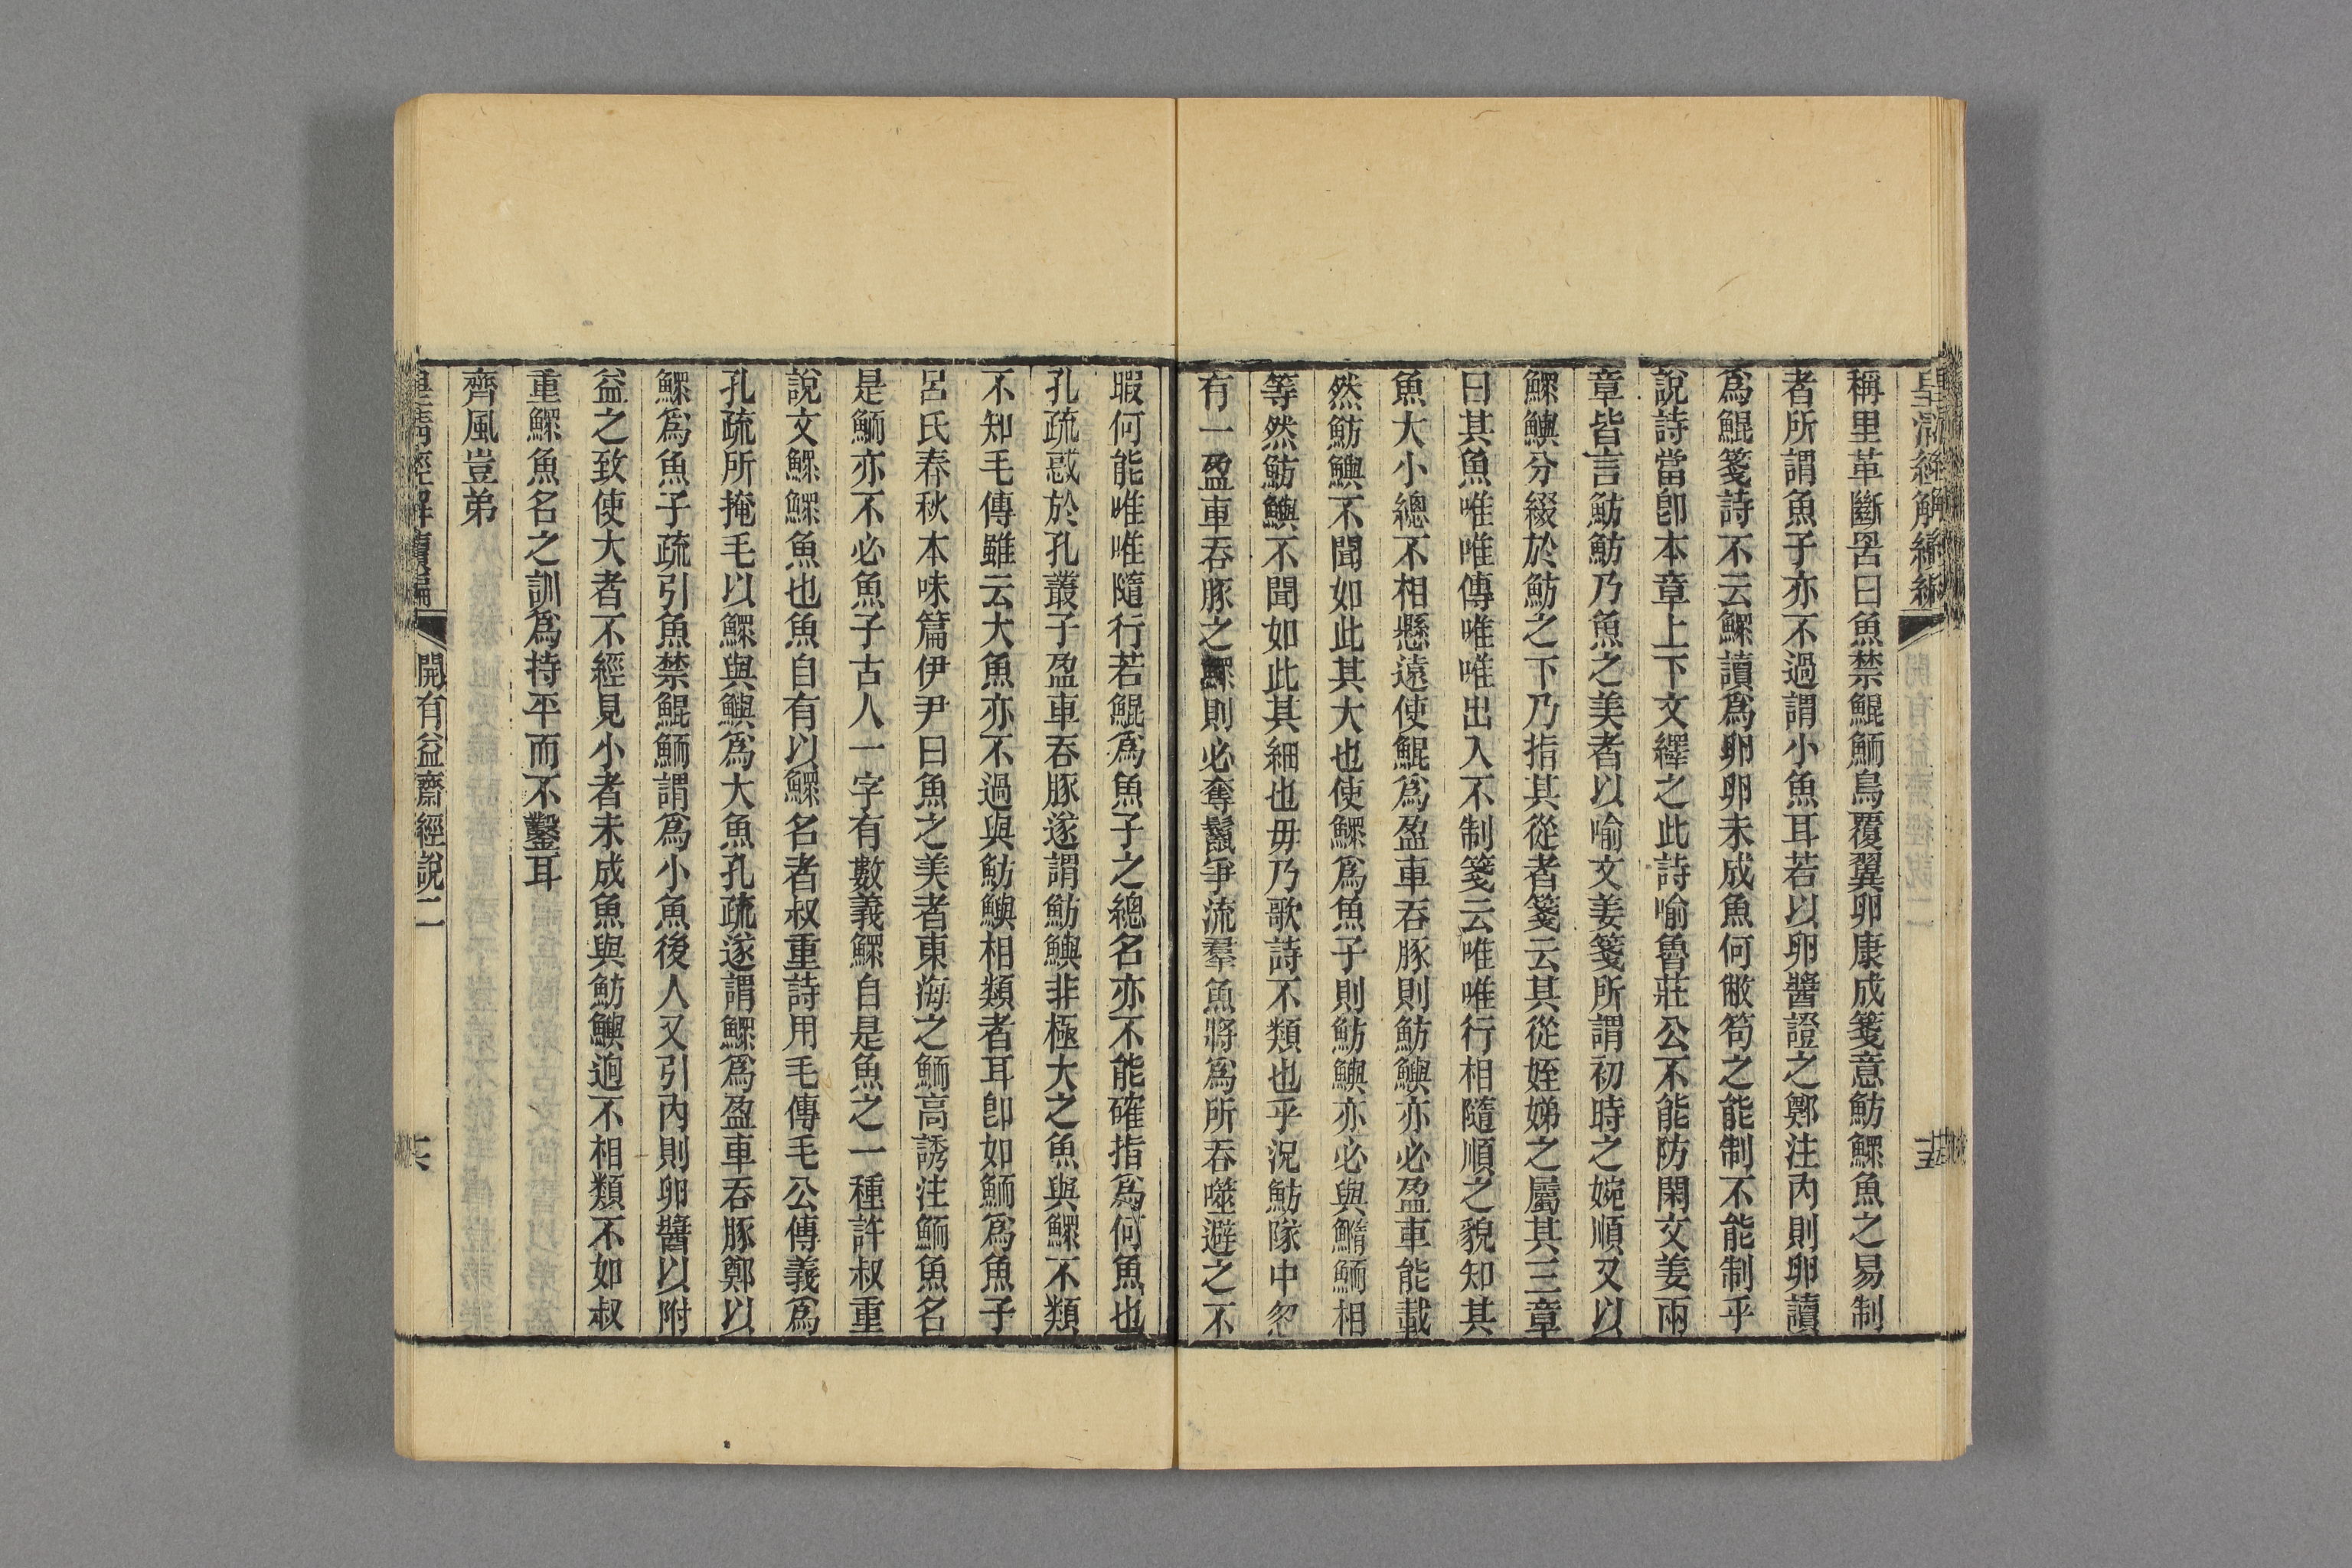 皇清經解續編
稱里革斷罟曰魚禁鯤鮞鳥覆翼卵康成箋意魴鰥魚之易制
者所謂魚子亦不過謂小魚耳若以卵醬證之鄭注內則卵讀
爲鯤箋詩不云鰥讀爲卵卵未成魚何敝笱之能制不能制乎
說詩當卽本章上下文繹之此詩喻魯莊公不能防閑文姜兩
章皆言魴魴乃魚之美者以喻文姜箋所謂初時之婉順又以
鰥鱮分綴於魴之下乃指其從者箋云其從姪娣之屬其三章
曰其魚唯唯傳唯唯出入不制箋云唯唯行相隨順之貌知其
魚大小總不相懸遠使鯤爲盈車吞豚則魴鱮亦必盈車能載
然魴鱮不聞如此其大也使鰥爲魚子則魴鱮亦必與鰌鮞相
等然魴鱮不聞如此其細也毋乃歌詩不類也乎況魴隊中忽
有一盈車吞豚之鰥則必奪鬣爭流羣魚將爲所吞噬避之不
暇何能唯唯隨行若鯤爲魚子之總名亦不能確指爲何魚也
孔疏惑於孔叢子盈車吞豚遂謂魴鱮非極大之魚與鰥不類
不知毛傳雖云大魚亦不過與魴鱮相類者耳卽如鮞爲魚子
呂氏春秋本味篇伊尹曰魚之美者東海之鮞高誘注鮞魚名
是鮞亦不必魚子古人一字有數義鰥自是魚之一種許叔重
說文鰥鰥魚也魚自有以鰥名者叔重詩用毛傳毛公傳義爲
孔疏所掩毛以鰥與鱮爲大魚孔疏遂謂鰥爲盈車吞豚鄭以
鰥爲魚子疏引魚禁鯤鮞謂爲小魚後人又引內則卵醬以附
益之致使大者不經見小者未成魚與魴鱮迥不相類不如叔
重鰥魚名之訓爲持平而不鑿耳
齊風豈弟
皇清經解續編
開有益齋經說二